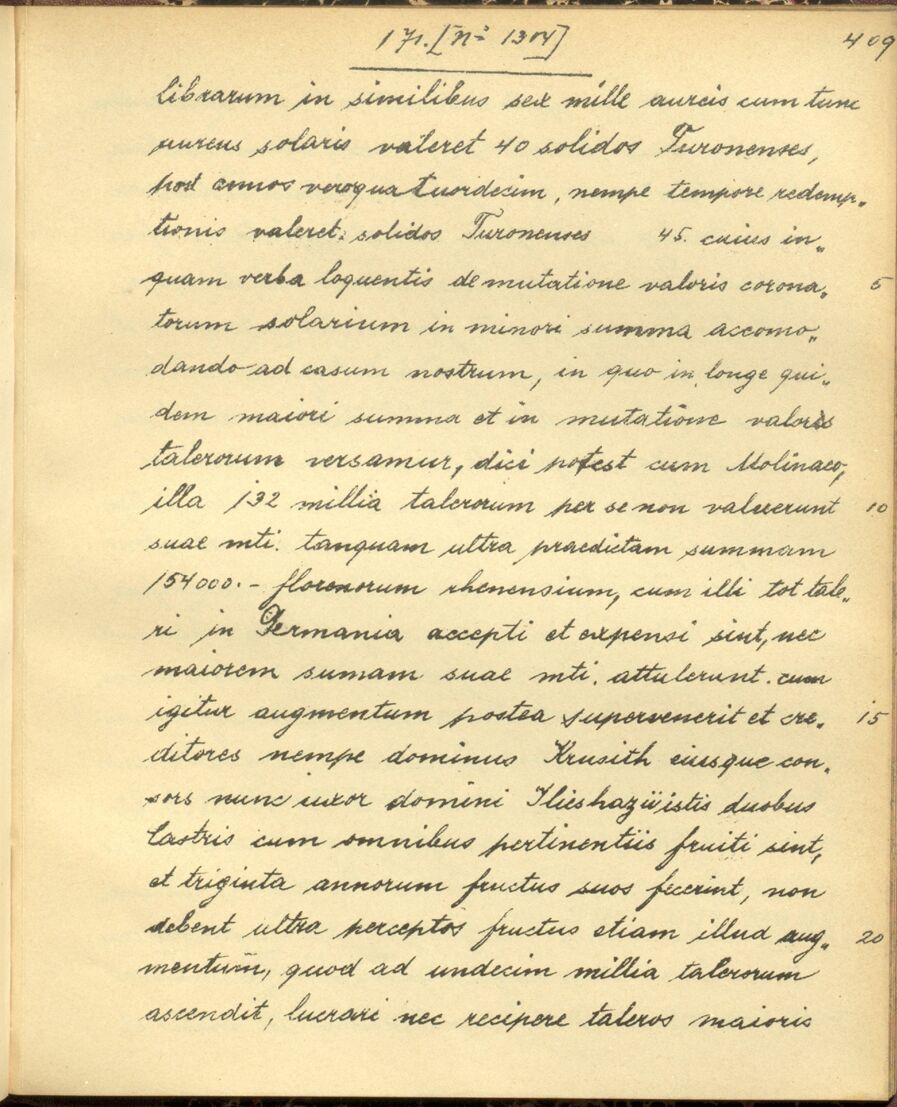 171. [Nº 1304]
409
librarum in similibus sex mille aureis cum tunc
aureus solaris valeret 40 solidos Turonenses,
post annos vero quatuordecim, nempe tempore redemp„
tionis valeret solidos Turonenses 45. cuius in„
quam verba loquentis de mutatione valoris corona„ 5
torum solarium in minori summa accomo„
dando ad casum nostrum, in quo in longe qui„
dem maiori summa et in mutatione valoris
talerorum versamur, dici potest cum Molinaeo,
illa 132 millia talerorum per se non valuerunt 10
suae mti. tanquam ultra praedictam summam
154000.- florenorum rhenensium, cum illi tot tale„
ri in Germania accepti et expensi sint, nec
maiorem sumam suae mti. attulerunt. cum
igitur augmentum postea supervenerit et cre„ 15
ditores nempe dominus Krusith eiusque con„
sors nunc uxor domini Ilieshazÿ istis duobus
castris cum omnibus pertinentiis fruiti sint,
et triginta annorum fructus suos fecerint, non
debent ultra perceptos fructus etiam illud aug„ 20
mentum, quod ad undecim millia talerorum
ascendit, lucrari nec recipere taleros maioris